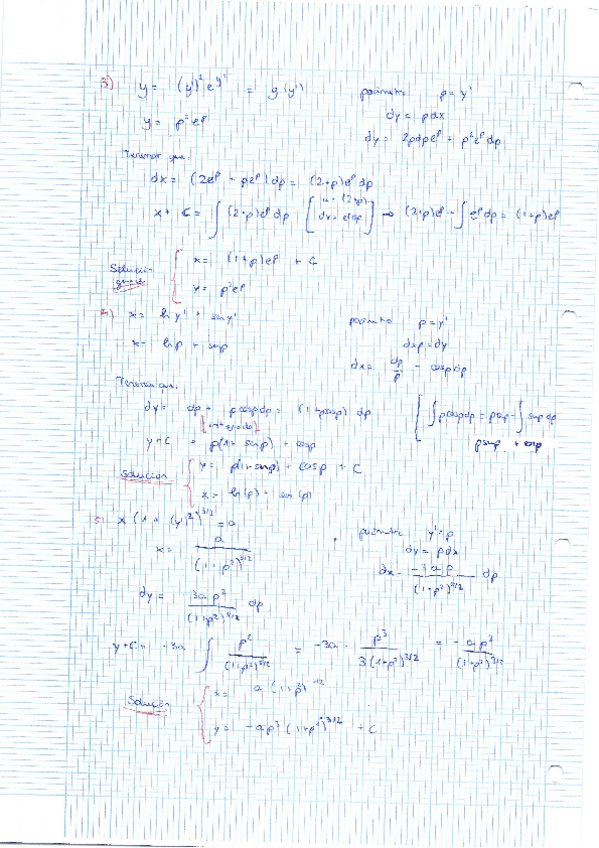 3) y = (y')² e^{y'} = g(y') parámetro p = y'
y = p² e^p dy = p dx
dy = 2p dp e^p + p² e^p dp
Tenemos que:
dx = (2e^p + pe^p) dp = (2+p)e^p dp
x + C = ∫ (2+p)e^p dp [u = (2+p) dv = e^p dp] → (2+p)e^p - ∫ e^p dp = (1+p)e^p
Solución general { x = (1+p)e^p + C
y = p² e^p
4) x = ln y' + sen y' parámetro p = y'
x = ln p + sen p dx p = dy
dx = dp/p + cos p dp
Tenemos que:
dy = dp + p cos p dp = (1 + p cos p) dp [ ∫ p cos p dp = p sen p - ∫ sen p dp
y + C = p(1 + sen p) + cos p p sen p + cos p
Solución { y = p(1 + sen p) + cos p + C
x = ln(p) + sen(p)
5) x(1 + (y')²)^{3/2} = a parámetro y' = p
x = a/(1+p²)^{3/2} dy = p dx
dx = -3ap/(1+p²)^{5/2} dp
dy = -3ap²/(1+p²)^{5/2} dp
y + C = -3a ∫ p²/(1+p²)^{5/2} = -3a · p³/3(1+p²)^{3/2} = -ap³/(1+p²)^{3/2}
Solución { x = a(1+p²)^{-3/2}
y = -ap³(1+p²)^{-3/2} + C